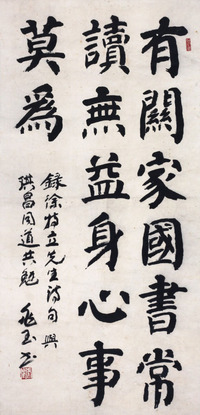 有關家國書常
讀無益身心事
莫為
錄徐特立先生詩句與
洪昌同道共勉